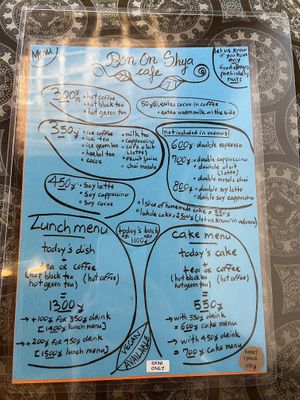 Menu!
Bon On Shya
cafe
let us know
if you have
any
food allergies
particularly
nuts
300¥
• hot coffee
• hot black tea
• hot green tea
50¥ : extra cocoa in coffee
: extra warm milk on the side
350¥
• ice coffee
• ice tea
• herbal tea
• cocoa
• milk tea
• cappuccino
• cafe o lait
(latte)
• fruit juice
• chai masala
not included in menus
600¥ : double espresso
700¥ : double cappuccino
: double o lait
(latte)
: double masala chai
800¥ : double soy latte
: double soy cappuccino
450¥
• Soy latte
• Soy cappuccino
• Soy cocoa
1 slice of homemade cake = 350¥
1 whole cake = 2500¥ (let us know in advance)
Lunch menu
today's dish
+
tea or coffee
(hot black tea (hot coffee)
hot green tea)
=
1300¥
→ +100¥ for 350¥ drink
[1400¥ lunch menu]
→ +200¥ for 450¥ drink
[1500¥ lunch menu]
today's lunch
1100¥
Cake menu
today's cake
+
tea or coffee
(hot black tea (hot coffee)
hot green tea)
=
550¥
→ with 350¥ drink
= 600¥ cake menu
→ with 450¥ drink
= 700¥ cake menu
VEGAN
AVAILABLE
CASH
ONLY
HONEY
100¥